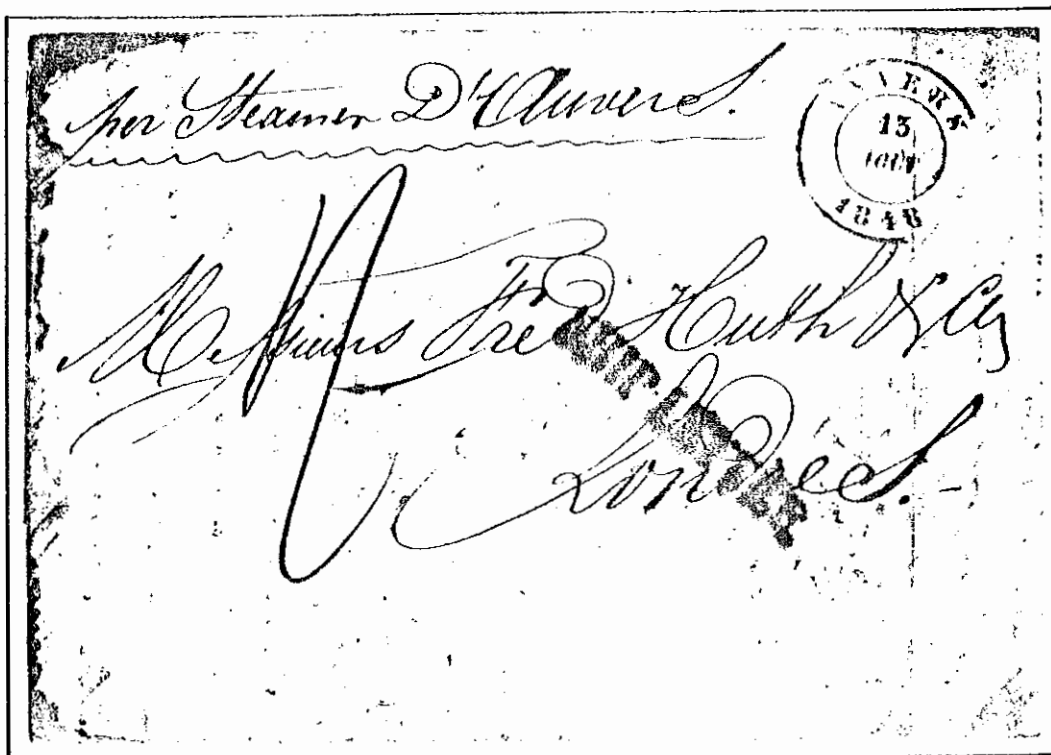 per Steamer D'Anvers.
ANVERS
13
AOUT
1848
Messieurs Fred Huth & Co
Londres.